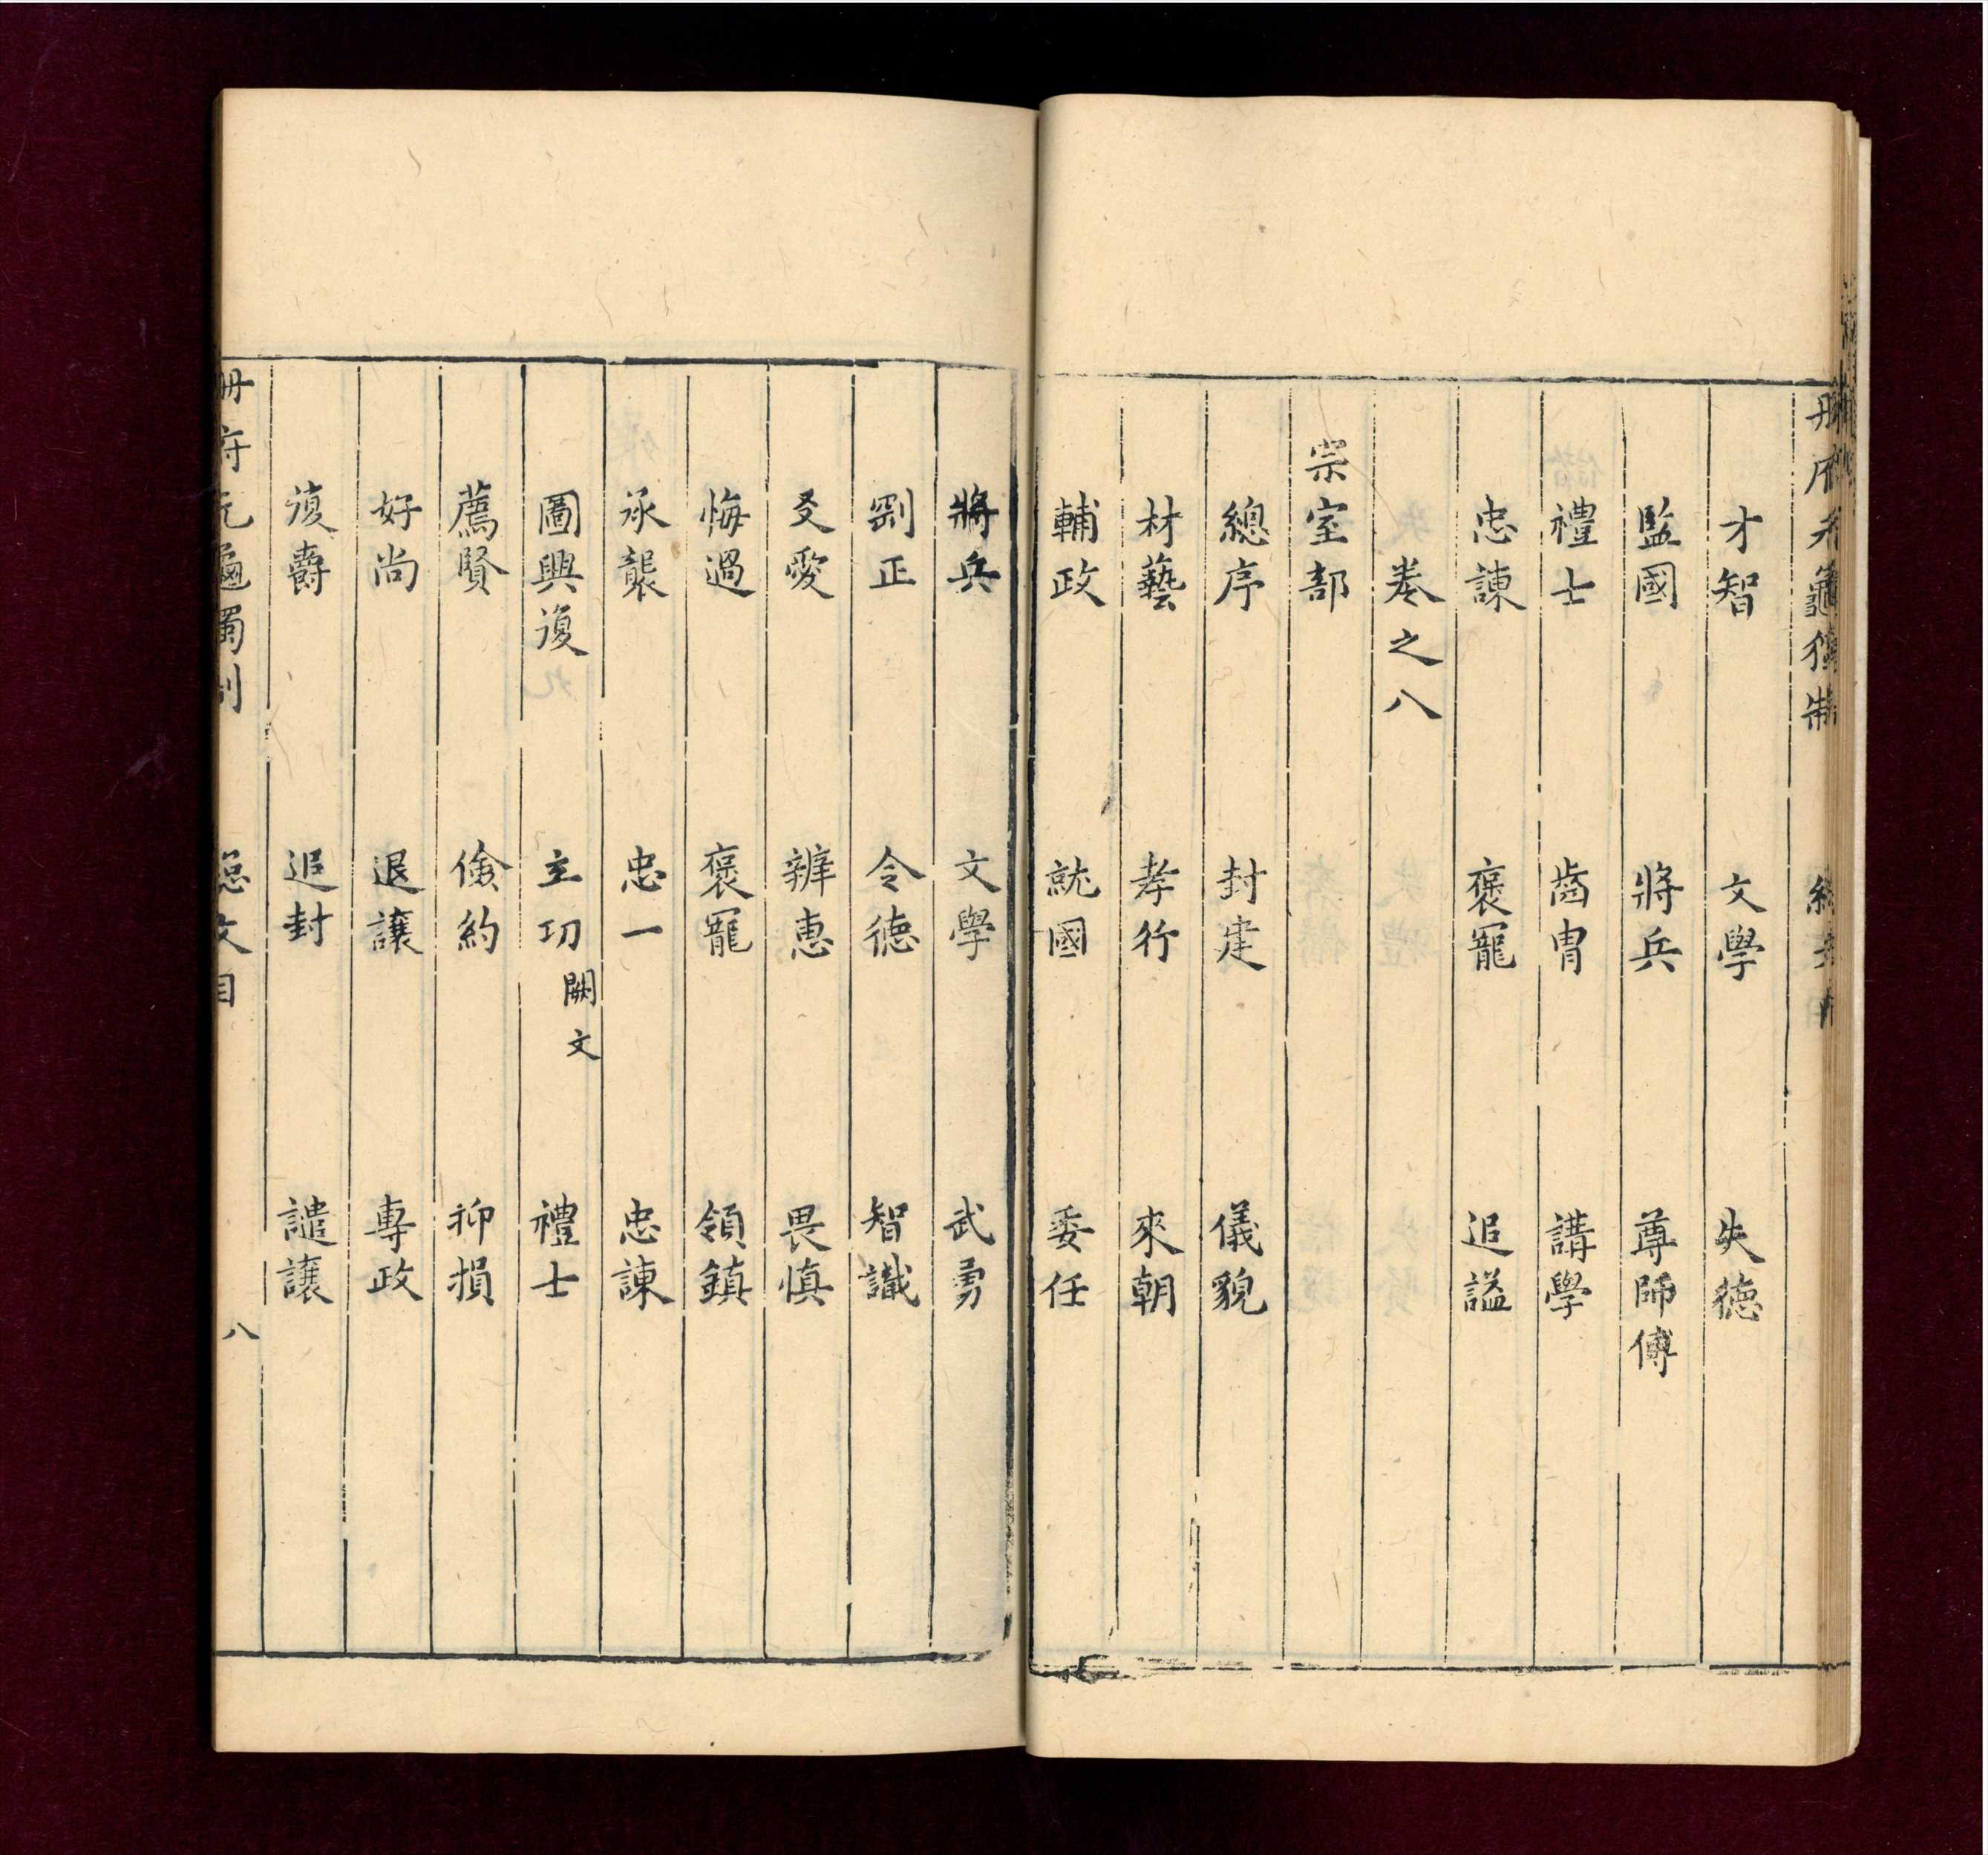 才智 文學 失德
監國 將兵 尊師傅
禮士 齒冑 講學
忠諫 褒寵 追諡
卷之八
宗室部
總序 封建 儀貌
材藝 孝行 來朝
輔政 就國 委任
將兵 文學 武勇
剛正 令德 智識
友愛 辨惠 畏慎
悔過 褒寵 領鎮
承襲 忠一 忠諫
圖興復 立功 闕文 禮士
薦賢 儉約 抑損
好尚 退讓 專政
復爵 追封 譴讓
冊府元龜獨制 總文目 八